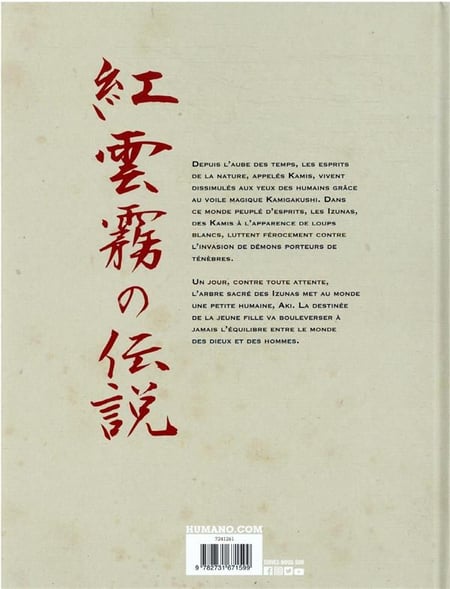 紅雲霧の伝説
DEPUIS L'AUBE DES TEMPS, LES ESPRITS
DE LA NATURE, APPELÉS KAMIS, VIVENT
DISSIMULÉS AUX YEUX DES HUMAINS GRÂCE
AU VOILE MAGIQUE KAMIGAKUSHI. DANS
CE MONDE PEUPLÉ D'ESPRITS, LES IZUNAS,
DES KAMIS À L'APPARENCE DE LOUPS
BLANCS, LUTTENT FÉROCEMENT CONTRE
L'INVASION DE DÉMONS PORTEURS DE
TÉNÈBRES.
UN JOUR, CONTRE TOUTE ATTENTE,
L'ARBRE SACRÉ DES IZUNAS MET AU MONDE
UNE PETITE HUMAINE, AKI. LA DESTINÉE
DE LA JEUNE FILLE VA BOULEVERSER À
JAMAIS L'ÉQUILIBRE ENTRE LE MONDE
DES DIEUX ET DES HOMMES.
HUMANO.COM
7241261
9 782731 671599
SUIVEZ-NOUS SUR